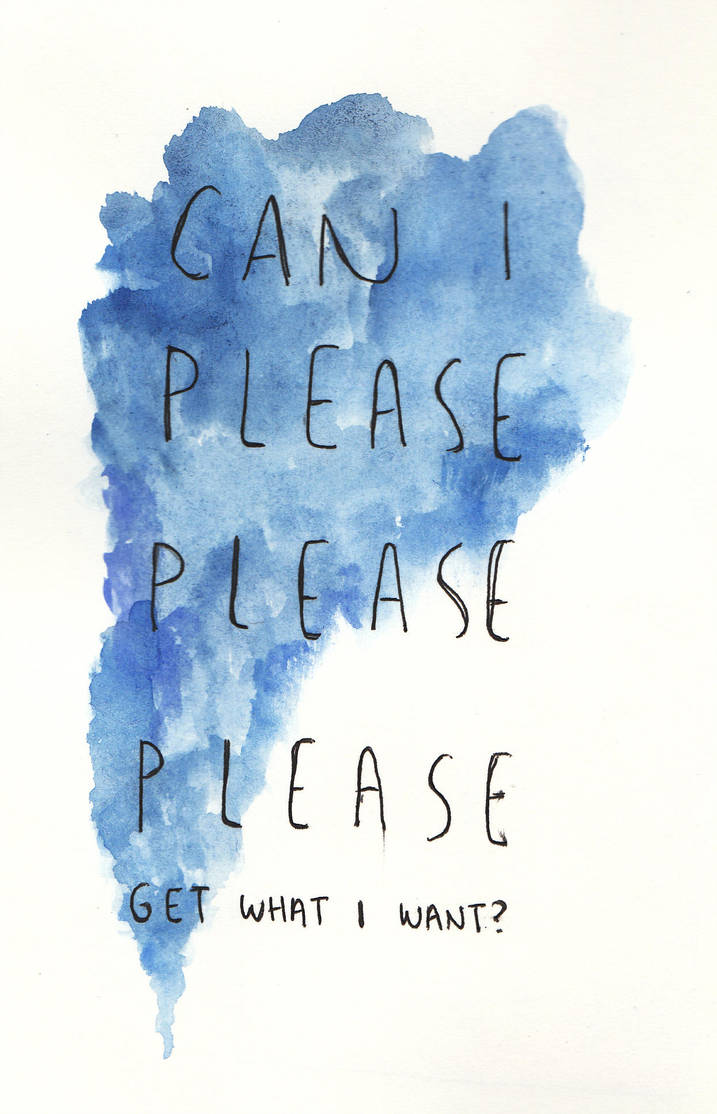 CAN I
PLEASE
PLEASE
PLEASE
GET WHAT I WANT?